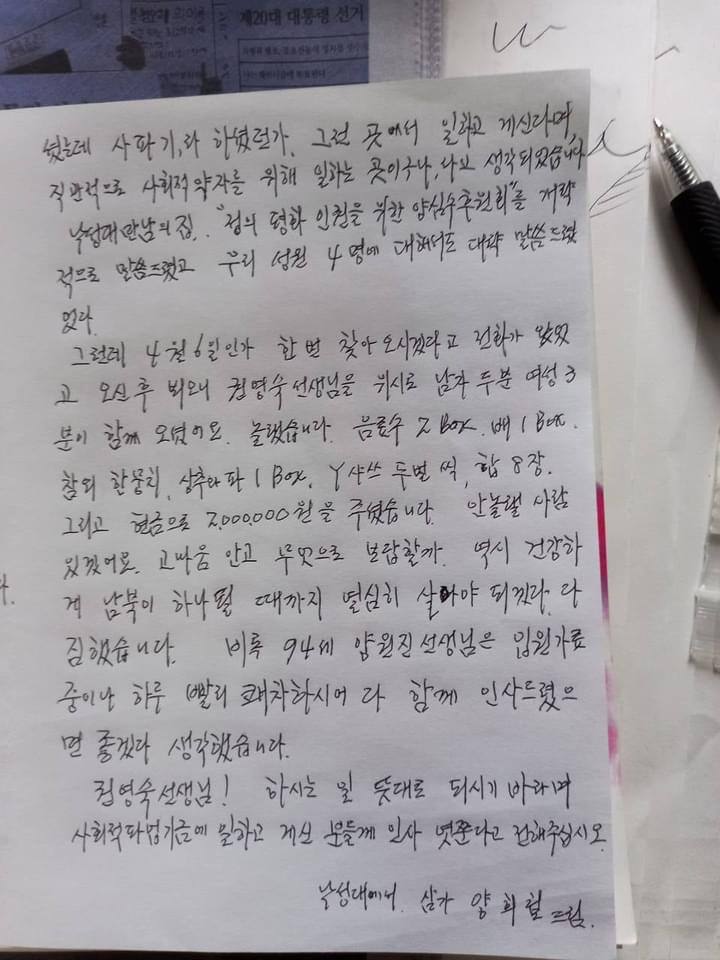 제20대 대통령 선거
셨는데 사파기,라 하셨던가. 그런 곳에서 일하고 계신다며,
직관적으로 사회적 약자를 위해 일하는 곳이구나,라고 생각되었습니다
낙성대 만남의집. "정의 평화 인권을 위한 양심수후원회"를 개략
적으로 말씀드렸고 우리 성원 4명에 대해서도 대략 말씀드렸
었다.
그런데 4월 6일인가 한번 찾아오시겠다고 전화가 왔었
고 오신 후 뵈오니 권영숙선생님을 위시로 남자 두분 여성 3
분이 함께 오셨어요. 놀랬습니다. 음료수 2 Box. 배 1 Box.
참외 한뭉치, 상추와 파 1 Box. Y샤쓰 두벌 씩, 합 8장.
그리고 현금으로 2,000,000원을 주셨습니다. 안놀랠 사람
있겠어요. 고마움 안고 무엇으로 보답할까. 역시 건강하
게 남북이 하나될 때까지 열심히 살아야 되겠다. 다
짐했습니다. 비록 94세 양원진선생님은 입원가료
중이나 하루 빨리 쾌차하시어 다 함께 인사드렸으
면 좋겠다 생각했습니다.
권영숙선생님! 하시는 일 뜻대로 되시기 바라며
사회적파업기금에 일하고 계신 분들께 인사 엿쭌다고 전해주십시오.
낙성대에서. 삼가 양희철 드림.